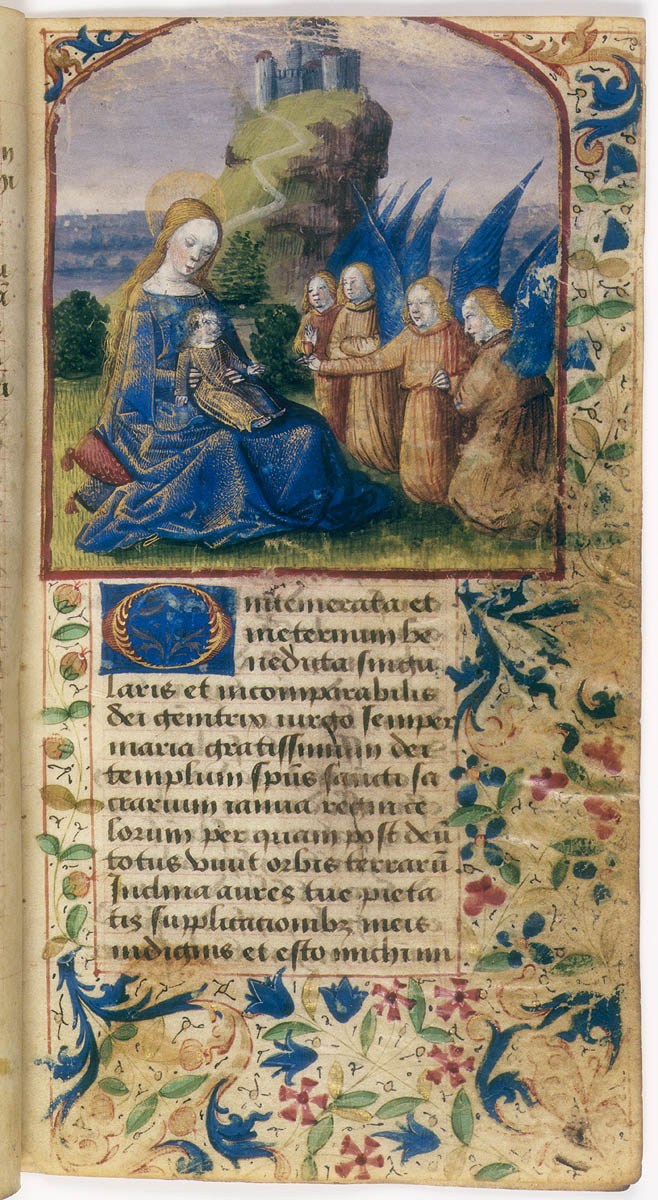 O intemerata et
in eternum be
nedicta singu
laris et incomparabilis
dei genitrix virgo semper
maria gratissimum dei
templum spūs sancti sa
crarium ianua regni ce
lorum per quam post deū
totus vivit orbis terrarū.
Inclina aures tue pieta
tis supplicacionibꝫ meis
indignis et esto michi mi